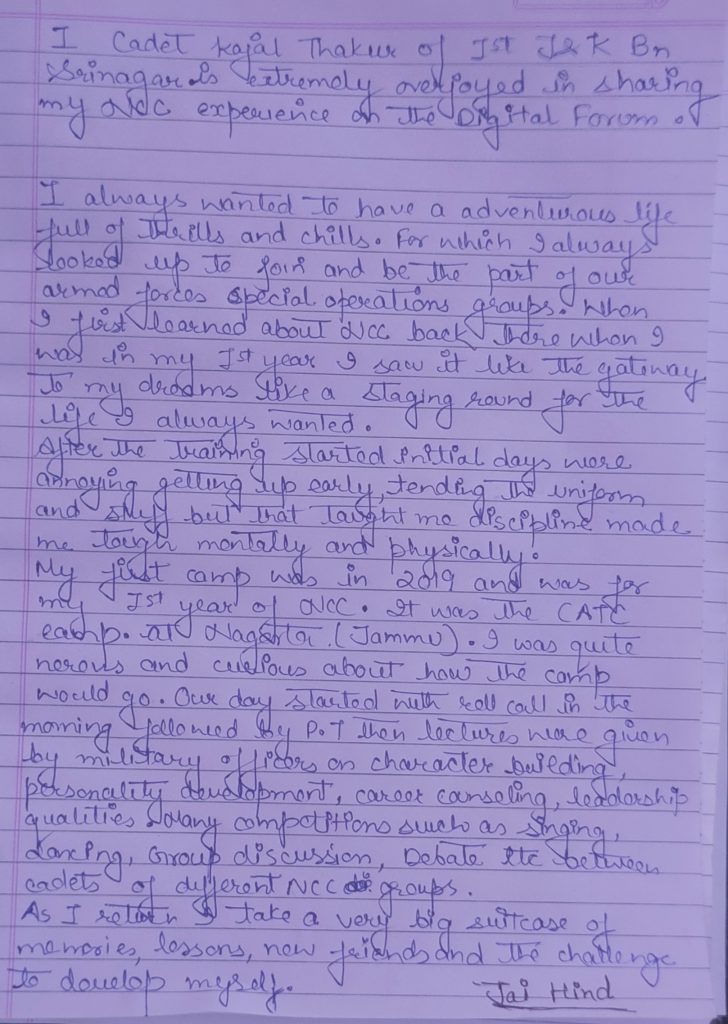 I Cadet Kajal Thakur of Ist J&K Bn
Srinagar is extremely overjoyed in sharing
my NCC experience on the Digital Forum.
I always wanted to have a adventurous life
full of thrills and chills. For which I always
looked up to join and be the part of our
armed forces special operations groups. When
I first learned about NCC back there when I
was in my Ist year I saw it like the gateway
to my dreams like a staging round for the
life I always wanted.
After the training started initial days were
annoying getting up early, tending the uniform
and stuff but that taught me discipline made
me tough mentally and physically.
My first camp was in 2019 and was for
my Ist year of NCC. It was the CATC
camp. at Nagarota (Jammu). I was quite
nervous and curious about how the camp
would go. Our day started with roll call in the
morning followed by P.T then lectures were given
by military officers on character building,
personality development, career counseling, leadership
qualities Many competitions such as singing,
dancing, Group discussion, Debate etc between
cadets of different NCC groups.
As I return I take a very big suitcase of
memories, lessons, new friends and the challenge
to develop myself.
Jai Hind